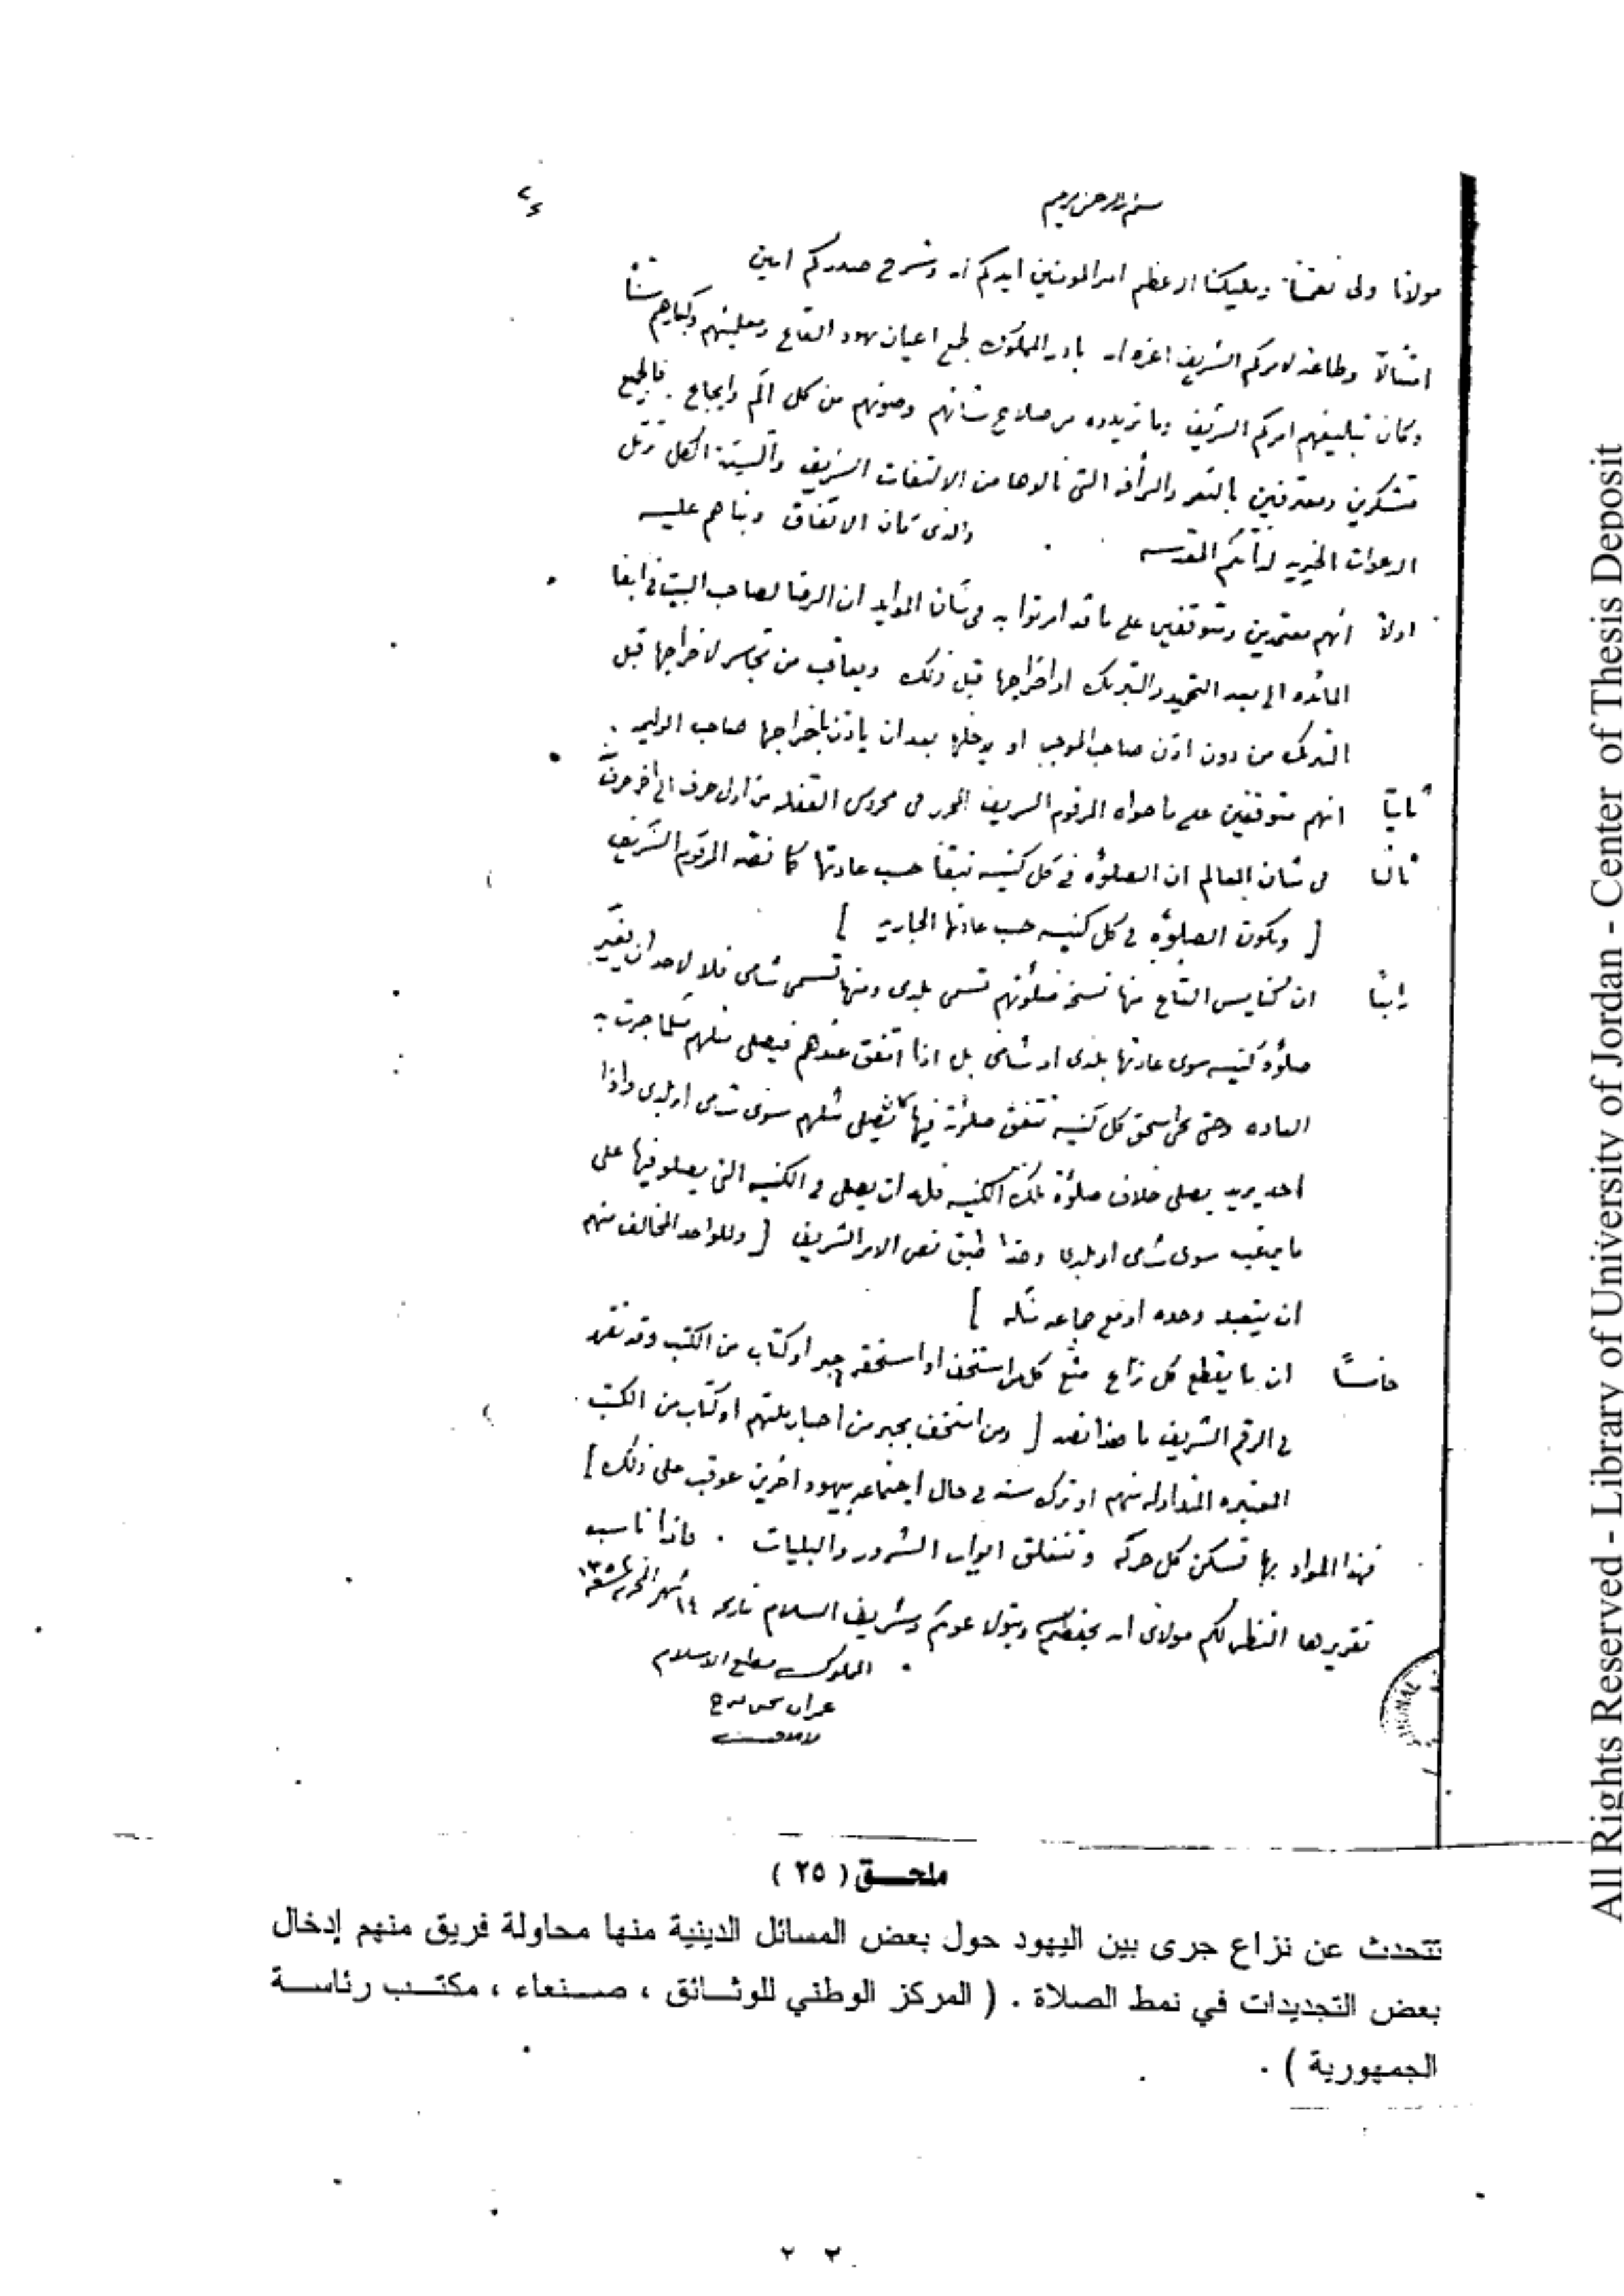 مولانا ولى نعمتنا ومليكنا الاعظم امير المومنين ايدكم الله وشرح صدركم امين
امتثالاً وطاعة لامركم الشريف اعزه الله بادر المملوك لجمع اعيان يهود القاع ومعلميهم وكبارهم
وكان تبليغهم امركم الشريف وما تريدوه من صلاح شانهم وصونهم من كل الم وايجاع . فالجميع
متشكرين ومعترفين والرأفه التى نالوها من الالتفات الشريف والسنة الكل ترتل
الدعوات الخيريه لذاتكم المقدسه والذى كان الاتفاق وبناهم عليه
اولاً انهم معتمدين ومتوقفين على ما قد امرتوا به فى شان الموايد ان الرضا لصاحب البيت فى ابقا
المائده الى بعد التحميد والتبريك او اخراجها قبل ذلك ويعاقب من تجاسر لاخراجها قبل
التبرك من دون اذن صاحب الموجب او يدخلها بعد ان ياذن باخراجها صاحب الوليمه .
ثانياً انهم متوقفين على ما حواه المرقوم الشريف المحرر فى محروس القفله من اول حرف الى اخر حرف
ثالثا فى شان العالم ان الصلوٰة فى كل كنيسه تبقا حسب عادتها كما نصه المرقوم الشريف
[ وتكون الصلوٰة فى كل كنيسه حسب عادتها الجاريه ]
رابعاً ان كنايس القاع منها نسخة صلوٰتهم تسمى بلدى ومنها تسمى شامى فلا لاحد ان يغير
صلوٰة كنيسه سوى عادتها بلدى او شامى بل اذا اتفق عندهم فيصلى مثلهم مثلما جرت به
العاده كل كنيسه تتفق صلوٰة فيها يصلى مثلهم سوى شامى او بلدى واذا
احد يريد يصلى خلاف صلوٰة تلك الكنيسه فله ان يصلى فى الكنيسه التى يصلو فيها على
ما يرغب سوى شامى او بلدى وهذا طبق نص الامر الشريف [ وللواحد المخالف منهم
ان يتعبد وحده او مع جماعه مثله ]
خامساً ان ما يقطع كل نزاع منع كل من استخف او استحقر حبر او كتاب من الكتب وقد تقرر
فى الرقم الشريف ما هذا نصه [ ومن استخف بحبر من احبار ملتهم او كتاب من الكتب
المعتبره المتداوله منهم او ترك سنه فى حال اجتماعه بيهود اخرين عوقب على ذلك ]
فهذا المواد بها تسكن كل حركه وتنغلق ابواب الشرور والبليات . فاذا ناسب
تقريرها النظر لكم مولاى الله يحفظكم ويتولى عونكم وشريف السلام تاريخه ١٤ شهر
المملوك مطيع الاسلام
ملحـــق ( ٢٥ )
تتحدث عن نزاع جرى بين اليهود حول بعض المسائل الدينية منها محاولة فريق منهم إدخال
بعض التجديدات في نمط الصلاة . ( المركز الوطني للوثــائق ، صــنعاء ، مكتــب رئاســة
الجمهورية ) .
All Rights Reserved - Library of University of Jordan - Center of Thesis Deposit